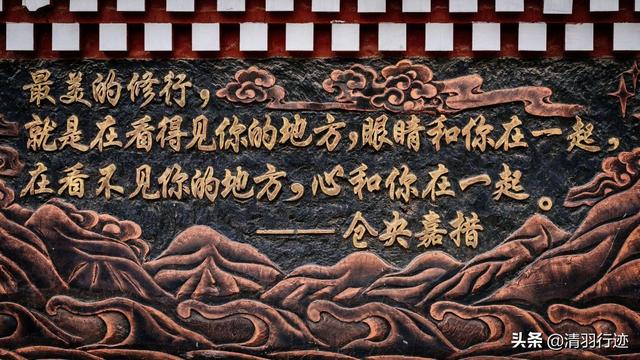 最美的修行，
就是在看得见你的地方，眼睛和你在一起，
在看不见你的地方，心和你在一起。
——仓央嘉措
头条 @清羽行迹